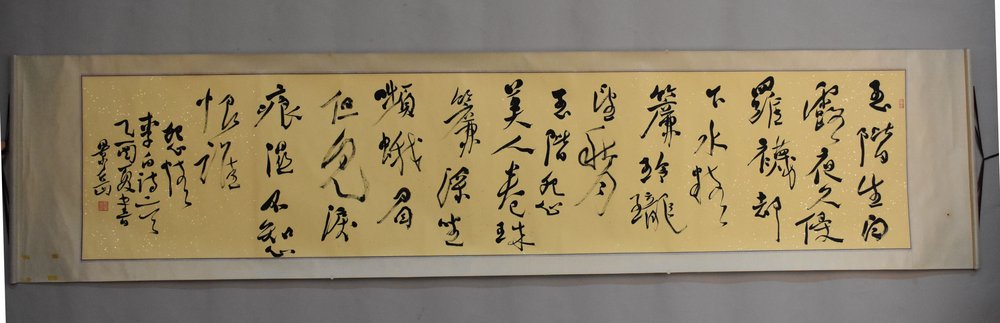 玉階生白
露夜久侵
羅襪却
下水精
簾玲瓏
望秋月
玉階怨
美人卷珠
簾深坐
嚬蛾眉
但見淚
痕濕不知心
恨誰
怨情
李白詩二首
乙酉夏書
景山